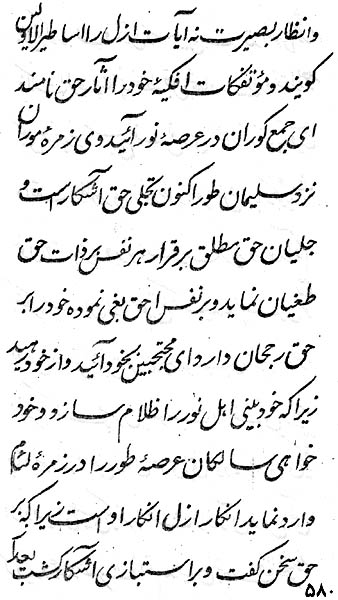 و انظار بصیرت نه آیات ازل را اساطیر الاولین
کویند و مؤتفکات افکیهٔ خود را آثار حق نامند
ای جمع کوران در عرصهٔ نور آئید وی زمرهٔ موران
نزد سلیمان طور اکنون تجلی حق آشکار است و
جلیان حق مطلق برقرار هر نفس بر ذات حق
طغیان نماید و بر نفس احق بغی نموده خود را بر
حق رجحان دارد ای محتجبین بخود آئید و از خود رهید
زیرا که خود بینی اهل نور را ظلام سازد و خود
خواهی سالکان عرصهٔ طور را در زمرهٔ لئام
وارد نماید انکار ازل انکار او است زیرا که بر
حق سخن کفت و براستبازی آشکار کشت بعد که
۵۸۰